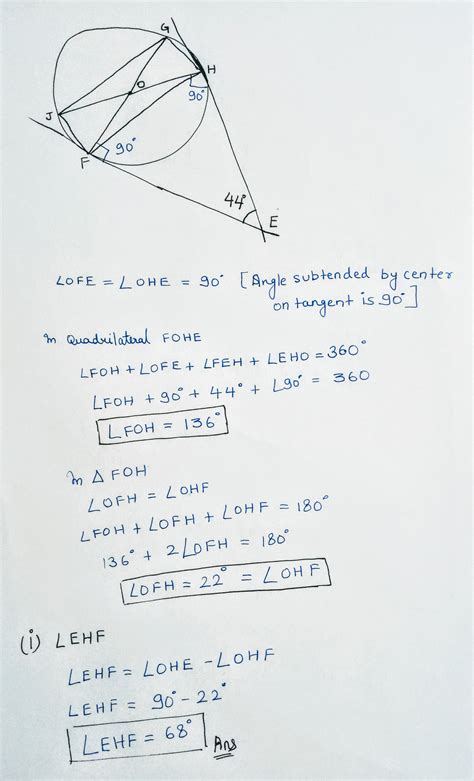 G
H
O
90°
J
90°
F
44°
E
∠OFE = ∠OHE = 90° [Angle subtended by center
on tangent is 90°]
In Quadrilateral FOHE
∠FOH + ∠OFE + ∠FEH + ∠EHO = 360°
∠FOH + 90° + 44° + ∠90° = 360
∠FOH = 136°
In △ FOH
∠OFH = ∠OHF
∠FOH + ∠OFH + ∠OHF = 180°
136° + 2∠OFH = 180°
∠OFH = 22° = ∠OHF
(i) ∠EHF
∠EHF = ∠OHE - ∠OHF
∠EHF = 90° - 22°
∠EHF = 68° Ans